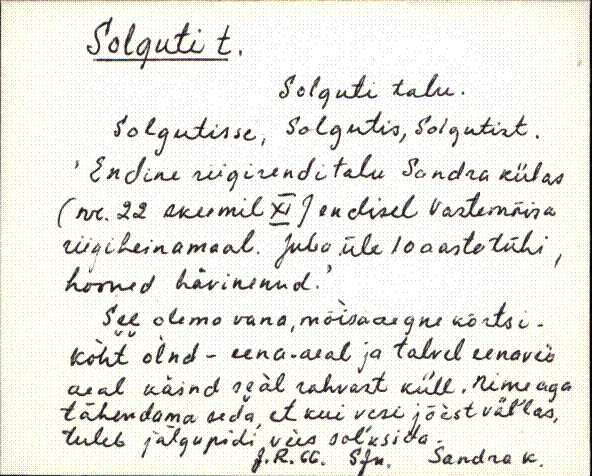 Solguti t.
Solguti talu.
Solgutisse, Solgutis, Solgutist.
'Endine riigirenditalu Sandra külas
(nr. 22 skeemil XI) endisel Vastemõisa
riigiheinamaal. Juba üle 10 aasta tühi,
hooned hävinenud.'
See olema vana, mõisaaegne kõrtsi-
kòht òlnd - eena-aeal ja talvel eenaveo
aeal käind seàl rahvast küll. Nime aga
tähendama seda, et kui vesi jõest väl'las,
tuleb jàlgupidi vees sol'ksida.
J.R. 66. SJn. Sandra k.